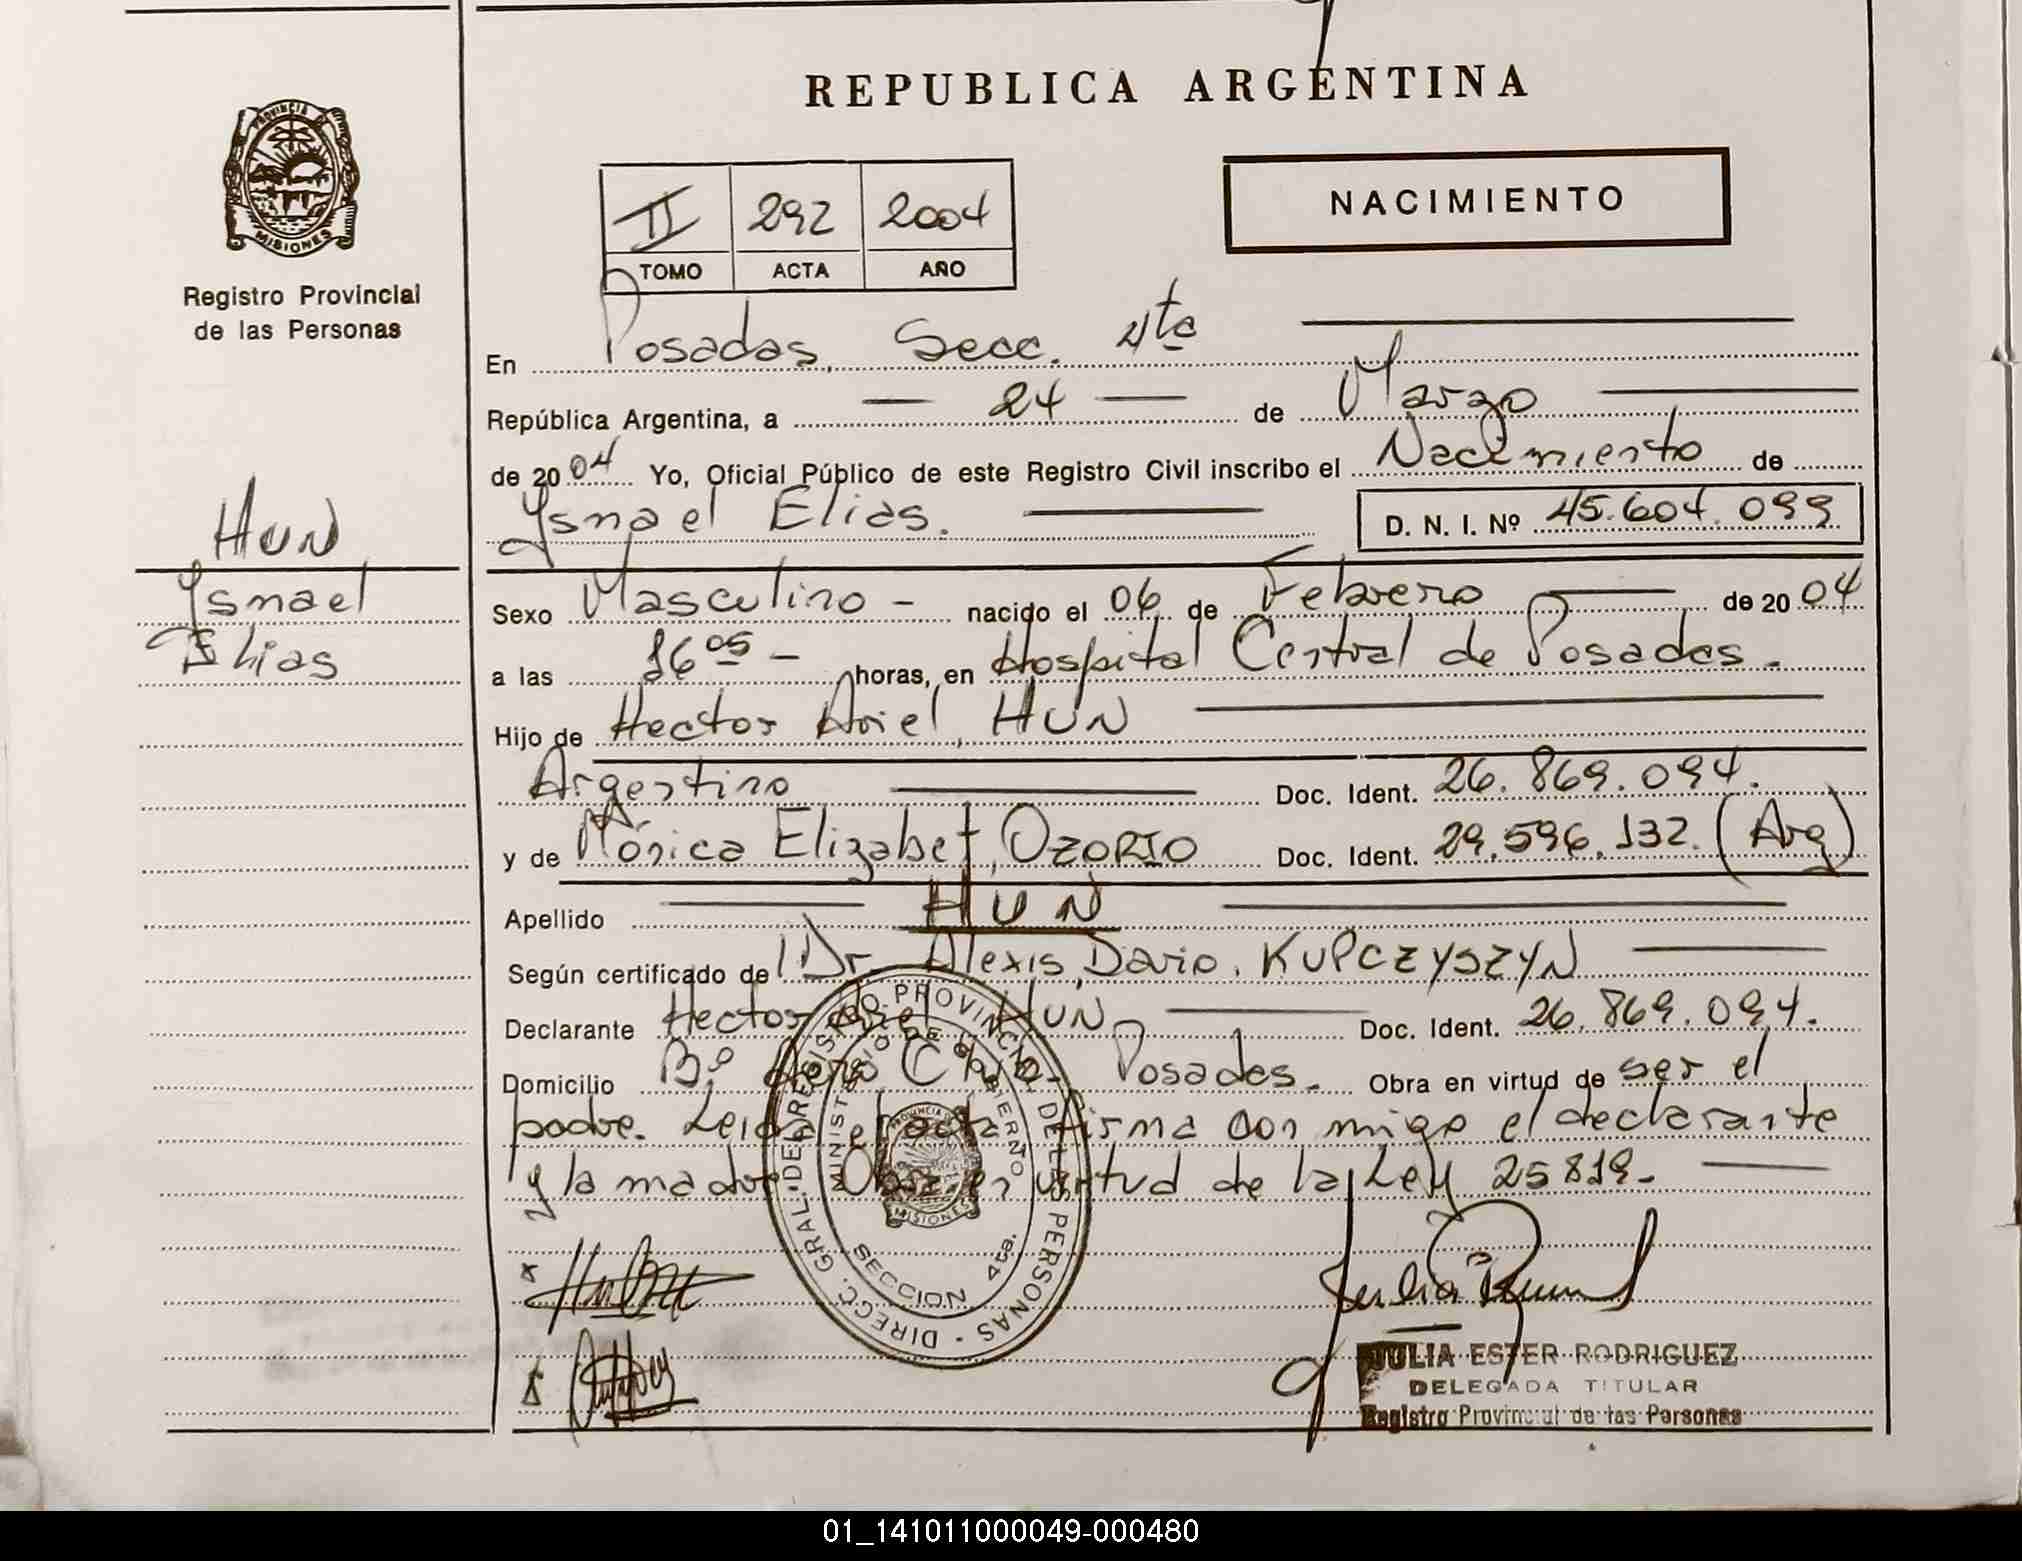 REPUBLICA ARGENTINA
PROVINCIA DE
MISIONES
Registro Provincial
de las Personas
II 292 2004
TOMO ACTA AÑO
NACIMIENTO
En Posadas, Secc. 4ta
República Argentina, a — 24 — de Marzo
de 2004 Yo, Oficial Público de este Registro Civil inscribo el Nacimiento de
Ysmael Elias.
D. N. I. Nº 45.604.099
HUN
Ysmael
Elias
Sexo Masculino - nacido el 06 de Febrero de 2004
a las 16 05 - horas, en Hospital Central de Posadas.
Hijo de Hector Ariel, HUN
Argentino Doc. Ident. 26.869.094.
y de Mónica Elizabet, OZORIO Doc. Ident. 29.596.132. (Arg)
Apellido HUN
Según certificado de Dr. Alexis Dario. KUPCZYSZYN
Declarante Hector Ariel HUN Doc. Ident. 26.869.094.
Domicilio Bº Aero Club Posadas. Obra en virtud de ser el
padre. Leida el acta firma con migo el declarante
y la madre. Obra en virtud de la Ley 25819.
DIRECC. GRAL. DEL REGISTRO PROVINCIAL DE LAS PERSONAS
MINISTERIO DE GOBIERNO
PROVINCIA DE
MISIONES
SECCION 4ta.
JULIA ESTER RODRIGUEZ
DELEGADA TITULAR
Registro Provincial de las Personas
01_141011000049-000480